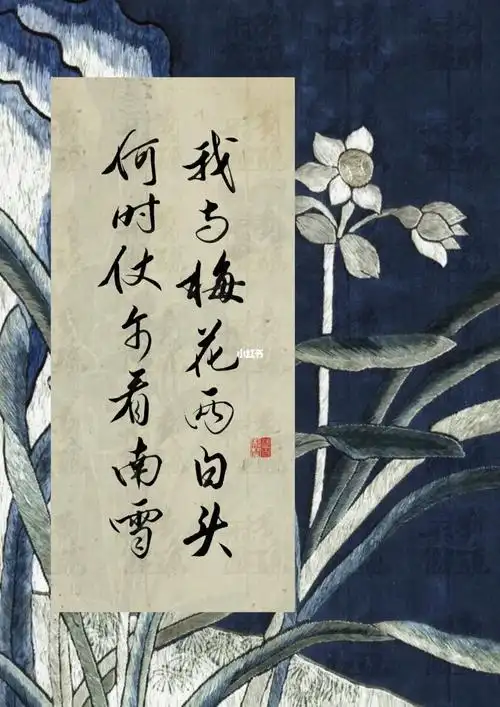 我与梅花两白头
何时仗尔看南雪
小红书